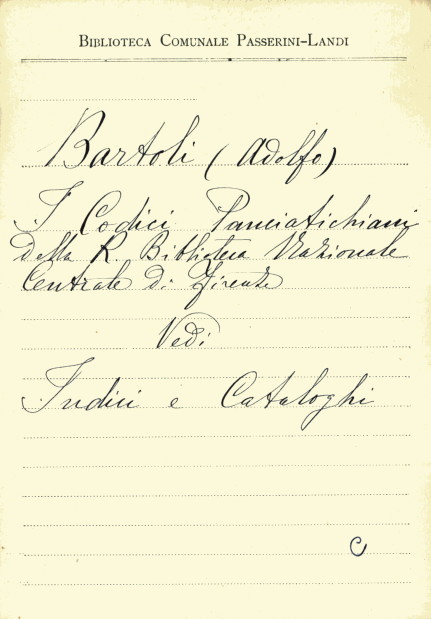 Biblioteca Comunale Passerini-Landi
Bartoli (Adolfo)
I Codici Panciatichiani
della R. Biblioteca Nazionale
Centrale di Firenze
Vedi
Indici e Cataloghi
C